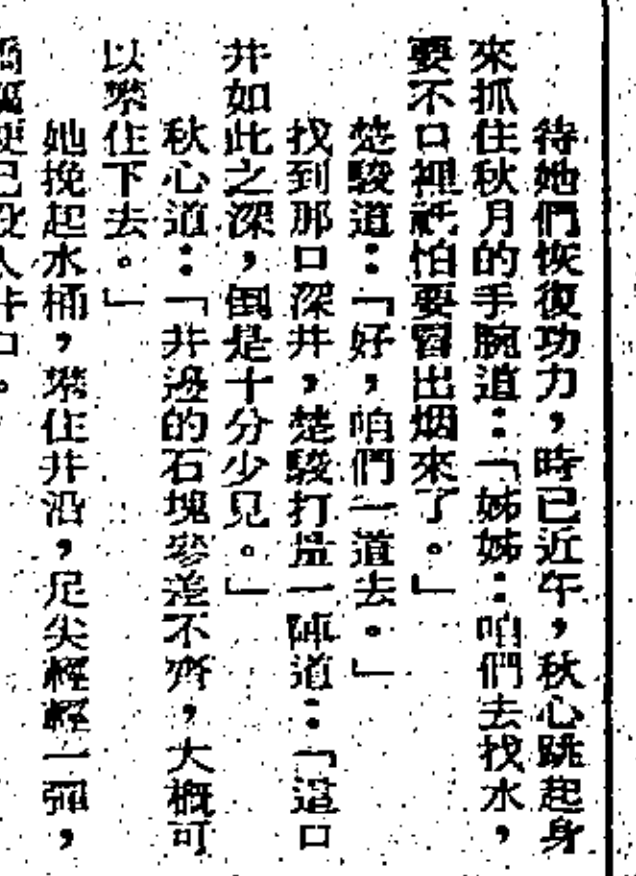 待她們恢復功力，時已近午，秋心跳起身
來抓住秋月的手腕道：「姊姊：咱們去找水，
要不口裡祇怕要冒出烟來了。」
楚駿道：「好，咱們一道去。」
找到那口深井，楚駿打量一陣道：「這口
井如此之深，倒是十分少見。」
秋心道：「井邊的石塊參差不齊，大概可
以攀住下去。」
她挽起水桶，攀住井沿，足尖輕輕一彈，
便已沒入井口。